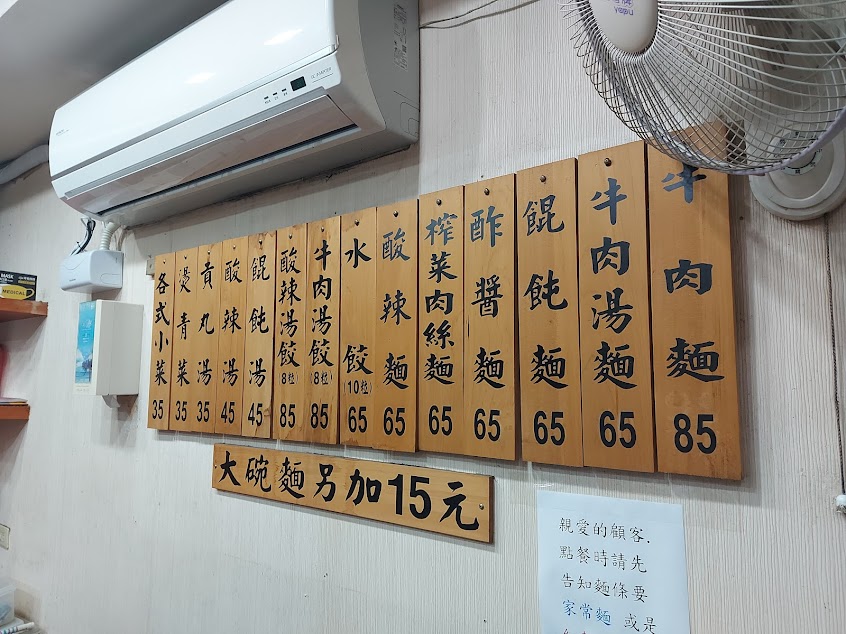 牛肉麵 85
牛肉湯麵 65
餛飩麵 65
酢醬麵 65
榨菜肉絲麵 65
酸辣麵 65
水餃(10粒) 65
牛肉湯餃(8粒) 85
酸辣湯餃(8粒) 85
餛飩湯 45
酸辣湯 45
貢丸湯 35
燙青菜 35
各式小菜 35
大碗麵另加15元
親愛的顧客.
點餐時請先
告知麵條要
家常麵 或是
MASK
MEDICAL